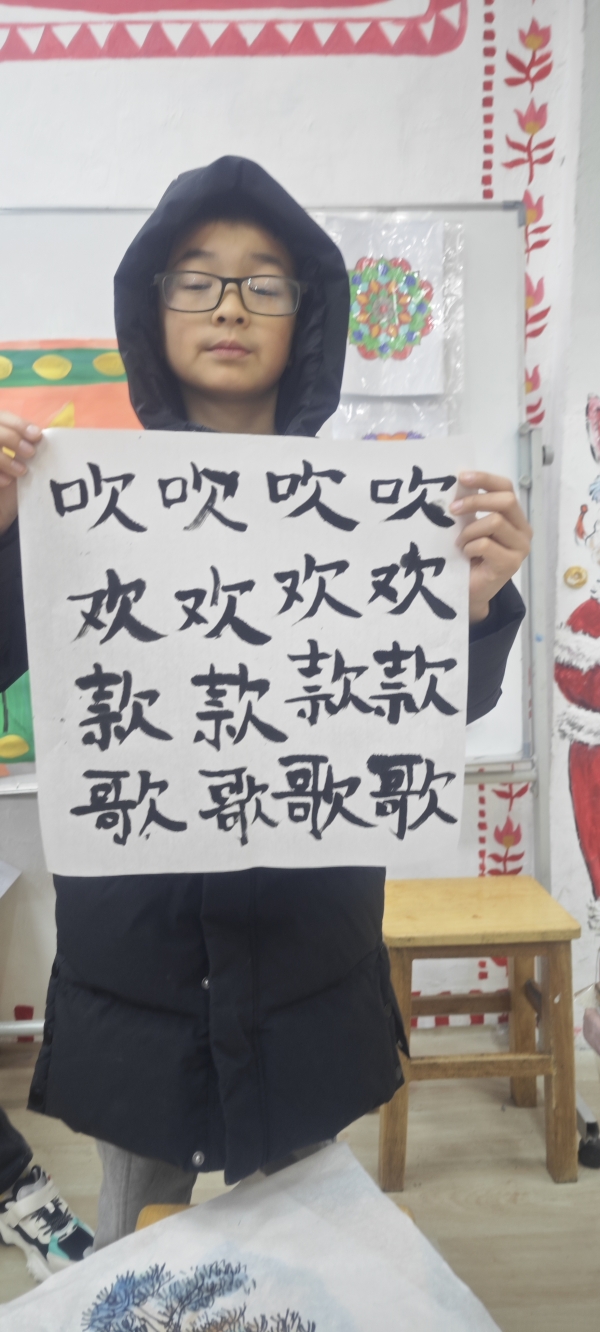 吹吹吹吹
欢欢欢欢
款款款款
歌歌歌歌